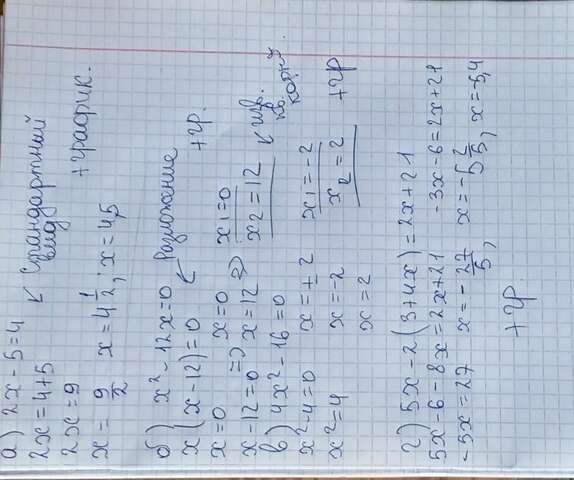 а) 2x - 5 = 4
2x = 4+5 ↙ Стандартный вид
2x = 9
x = 9/2 x = 4 1/2; x = 4,5 + график.
б) x² - 12x = 0
x(x - 12) = 0 ↙ Разложение
x = 0 x = 0 x1 = 0 + гр.
x - 12 = 0 => x = 12 => x2 = 12
в) 4x² - 16 = 0 ↙ изв. кв. корня.
x² - 4 = 0 x = ± 2 x1 = -2
x² = 4 x = -2 x2 = 2 + гр
x = 2
г) 5x - 2(3+4x) = 2x + 21
5x - 6 - 8x = 2x + 21 -3x - 6 = 2x + 21
-5x = 27 x = - 27/5, x = -5 2/5, x = -5,4
+ гр.